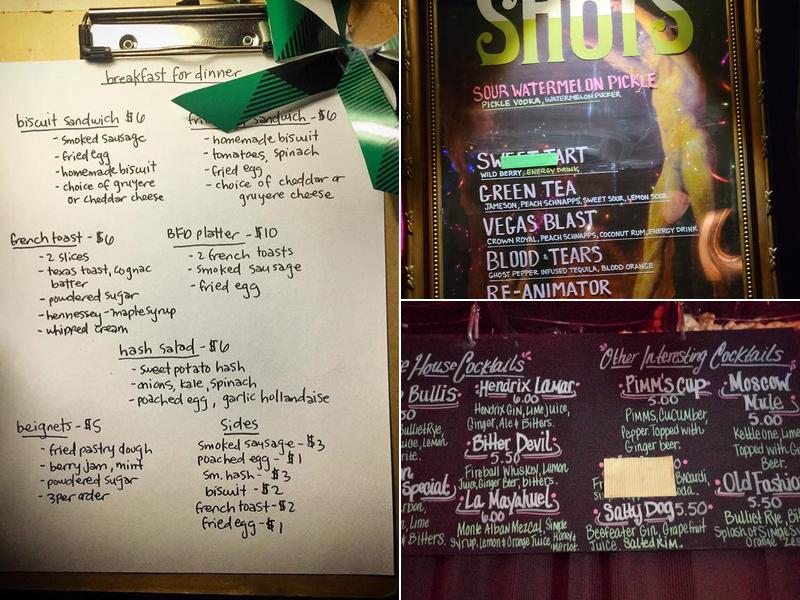 breakfast for dinner
biscuit sandwich $6
- smoked sausage
- fried egg
- homemade biscuit
- choice of gruyere
or cheddar cheese
sandwich - $6
- homemade biscuit
- tomatoes, spinach
- fried egg
- choice of cheddar or
gruyere cheese
french toast - $6
- 2 slices
- texas toast, cognac
batter
- powdered sugar
- hennessey-maple syrup
- whipped cream
BFD platter - $10
- 2 french toasts
- smoked sausage
- fried egg
hash salad - $6
- sweet potato hash
- onions, kale, spinach
- poached egg, garlic hollandaise
beignets - $5
- fried pastry dough
- berry jam, mint
- powdered sugar
- 3 per order
Sides
smoked sausage - $3
poached egg - $1
sm. hash - $3
biscuit - $2
french toast - $2
fried egg - $1
SHOTS
SOUR WATERMELON PICKLE
PICKLE VODKA, WATERMELON PUCKER
TART
WILD BERRY, ENERGY DRINK
GREEN TEA
JAMESON, PEACH SCHNAPPS, SWEET SOUR, LEMON SODA
VEGAS BLAST
CROWN ROYAL, PEACH SCHNAPPS, COCONUT RUM, ENERGY DRINK
BLOOD & TEARS
GHOST PEPPER INFUSED TEQUILA, BLOOD ORANGE
RE-ANIMATOR
House Cocktails
Bullis
50
Lemon
Special
Lime
& Bitters.
Hendrix Lamar
6.00
Hendrix Gin, Lime juice,
Ginger, Ale & Bitters.
Bitter Devil
5.50
Fireball Whiskey, Lemon
Juice, Ginger Beer, bitters.
La Mayahuel
6.00
Monte Alban Mezcal, Simple
Syrup, Lemon & Orange Juice, Honey &
Merlot.
Other Interesting Cocktails
Pimm's Cup
5.00
Pimms, Cucumber
Pepper. Topped with
Ginger beer.
Bacardi,
Salty Dog 5.50
Beefeater Gin, Grapefruit
Juice. Salted Rim.
Moscow
Mule
5.00
Kettle One, Lime
Topped with Gi
Beer.
Old Fashio
5.50
Bulliet Rye, Bit
Splash of Simple Sy
Orange Zes